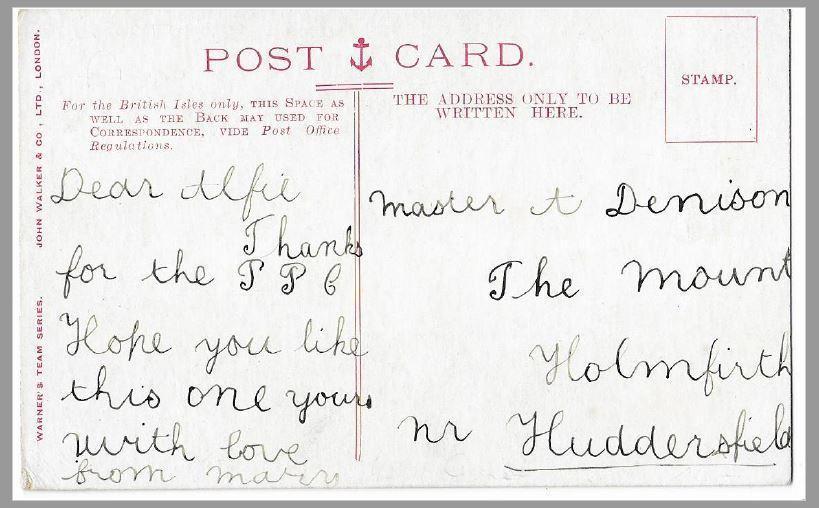 POST CARD.
STAMP.
For the British Isles only, THIS SPACE AS
WELL AS THE BACK MAY USED FOR
CORRESPONDENCE, VIDE Post Office
Regulations.
THE ADDRESS ONLY TO BE
WRITTEN HERE.
WARNER'S TEAM SERIES. JOHN WALKER & CO, LTD., LONDON.
Dear Alfie
Thanks
for the P P C
Hope you like
this one yours
with love
from mary
master A Denison
The mount
Holmfirth
nr Huddersfield